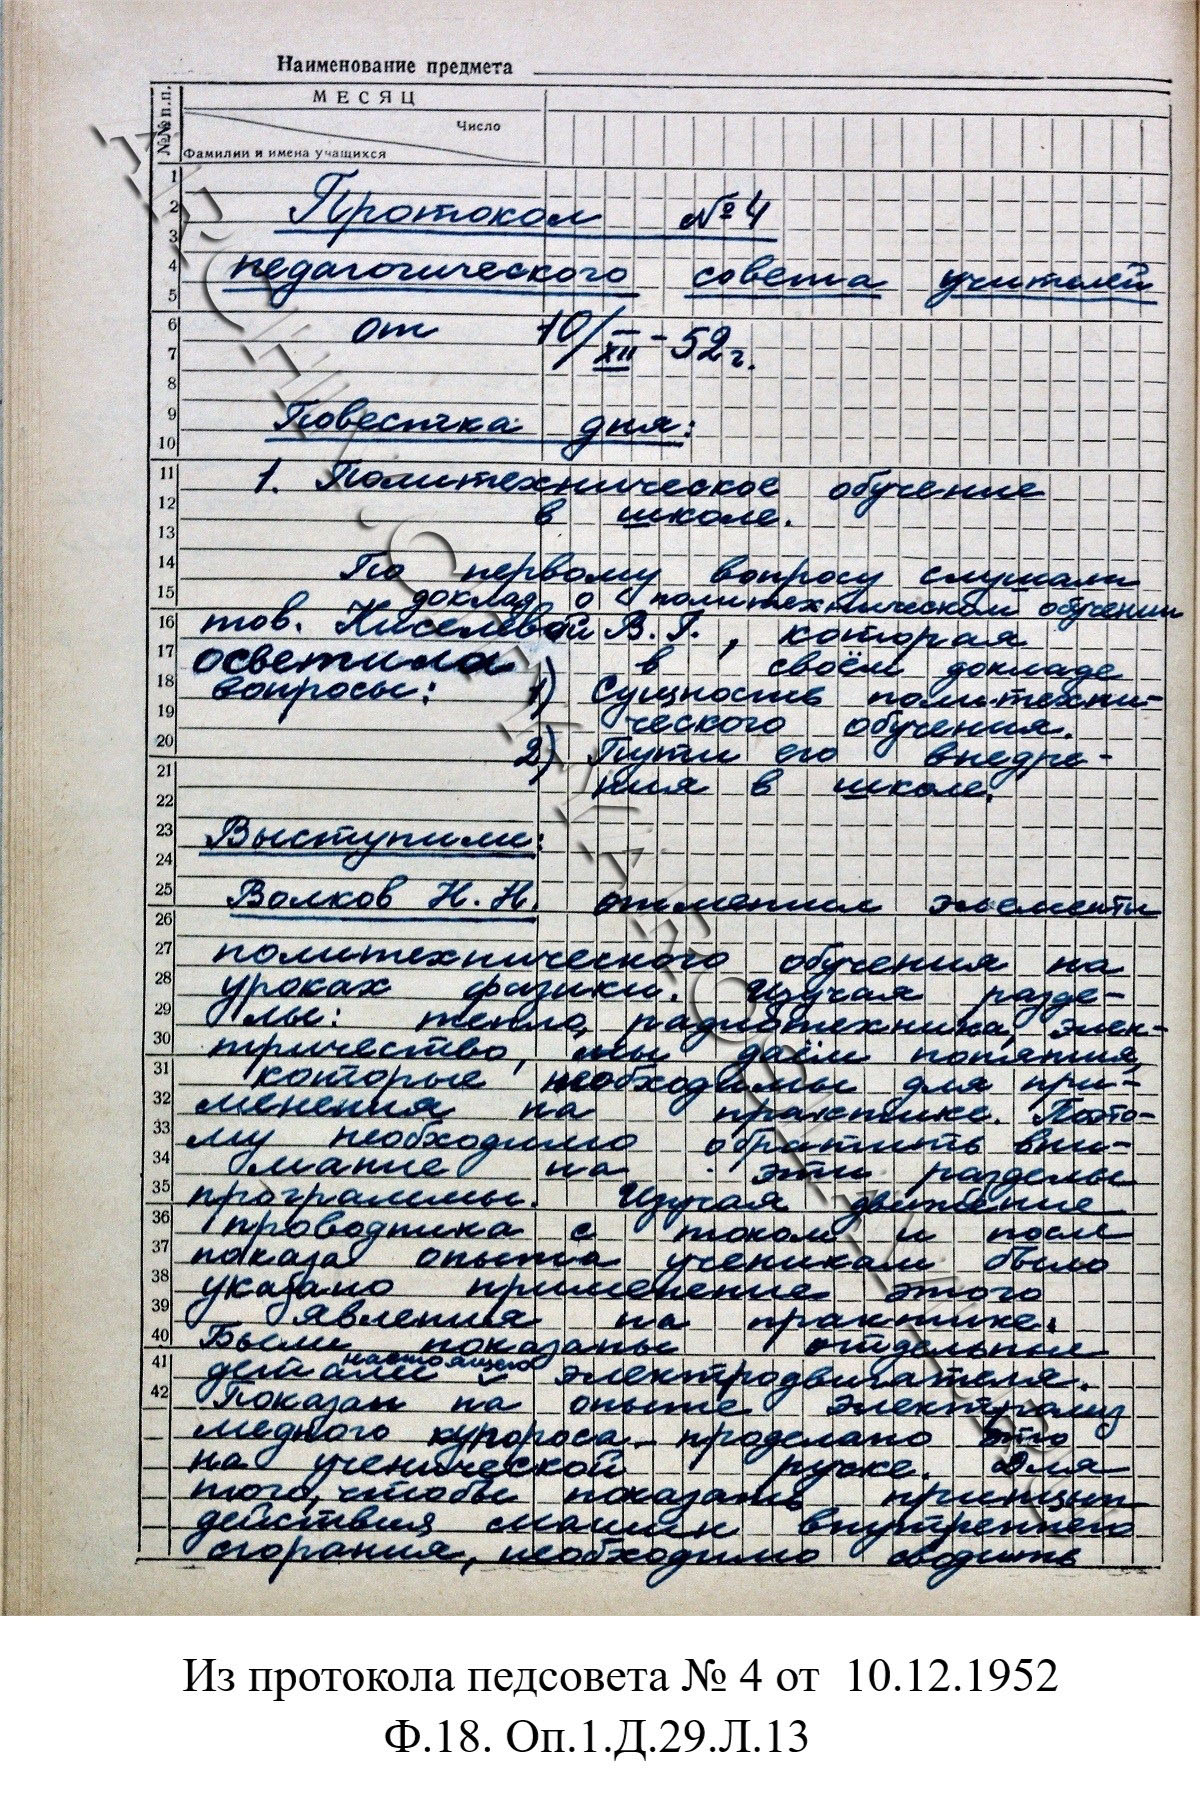 Наименование предмета
№№ п.п.
МЕСЯЦ
Число
Фамилии и имена учащихся
1
2
3
4
5
6
7
8
9
10
11
12
13
14
15
16
17
18
19
20
21
22
23
24
25
26
27
28
29
30
31
32
33
34
35
36
37
38
39
40
41
42
Протокол №4
педагогического совета учителей
от 10/XII-52г.
Повестка дня:
1. Политехническое обучение
в школе.
По первому вопросу слушали
доклад о политехническом обучении
тов. Киселевой В.Г., которая
осветила в своём докладе
вопросы: 1) Сущность политехни-
ческого обучения.
2) Пути его внедре-
ния в школе.
Выступили:
Волков Н.Н. отметил элементы
политехнического обучения на
уроках физики. Изучая разде-
лы: тепло, радиотехника, элек-
тричество, мы даём понятия,
которые необходимы для при-
менения на практике. Поэто-
му необходимо обратить вни-
мание на эти разделы
программы. Изучая движение
проводника с током и после
показа опыта ученикам было
указано применение этого
явления на практике.
Были показаны отдельные
детали настоящего электродвигателя.
Показан на опыте электролиз
медного купороса - проделано это
на ученической ручке. Для
того, чтобы показать принцип
действия машин внутреннего
сгорания, необходимо сводить
Из протокола педсовета № 4 от 10.12.1952
Ф.18. Оп.1.Д.29.Л.13